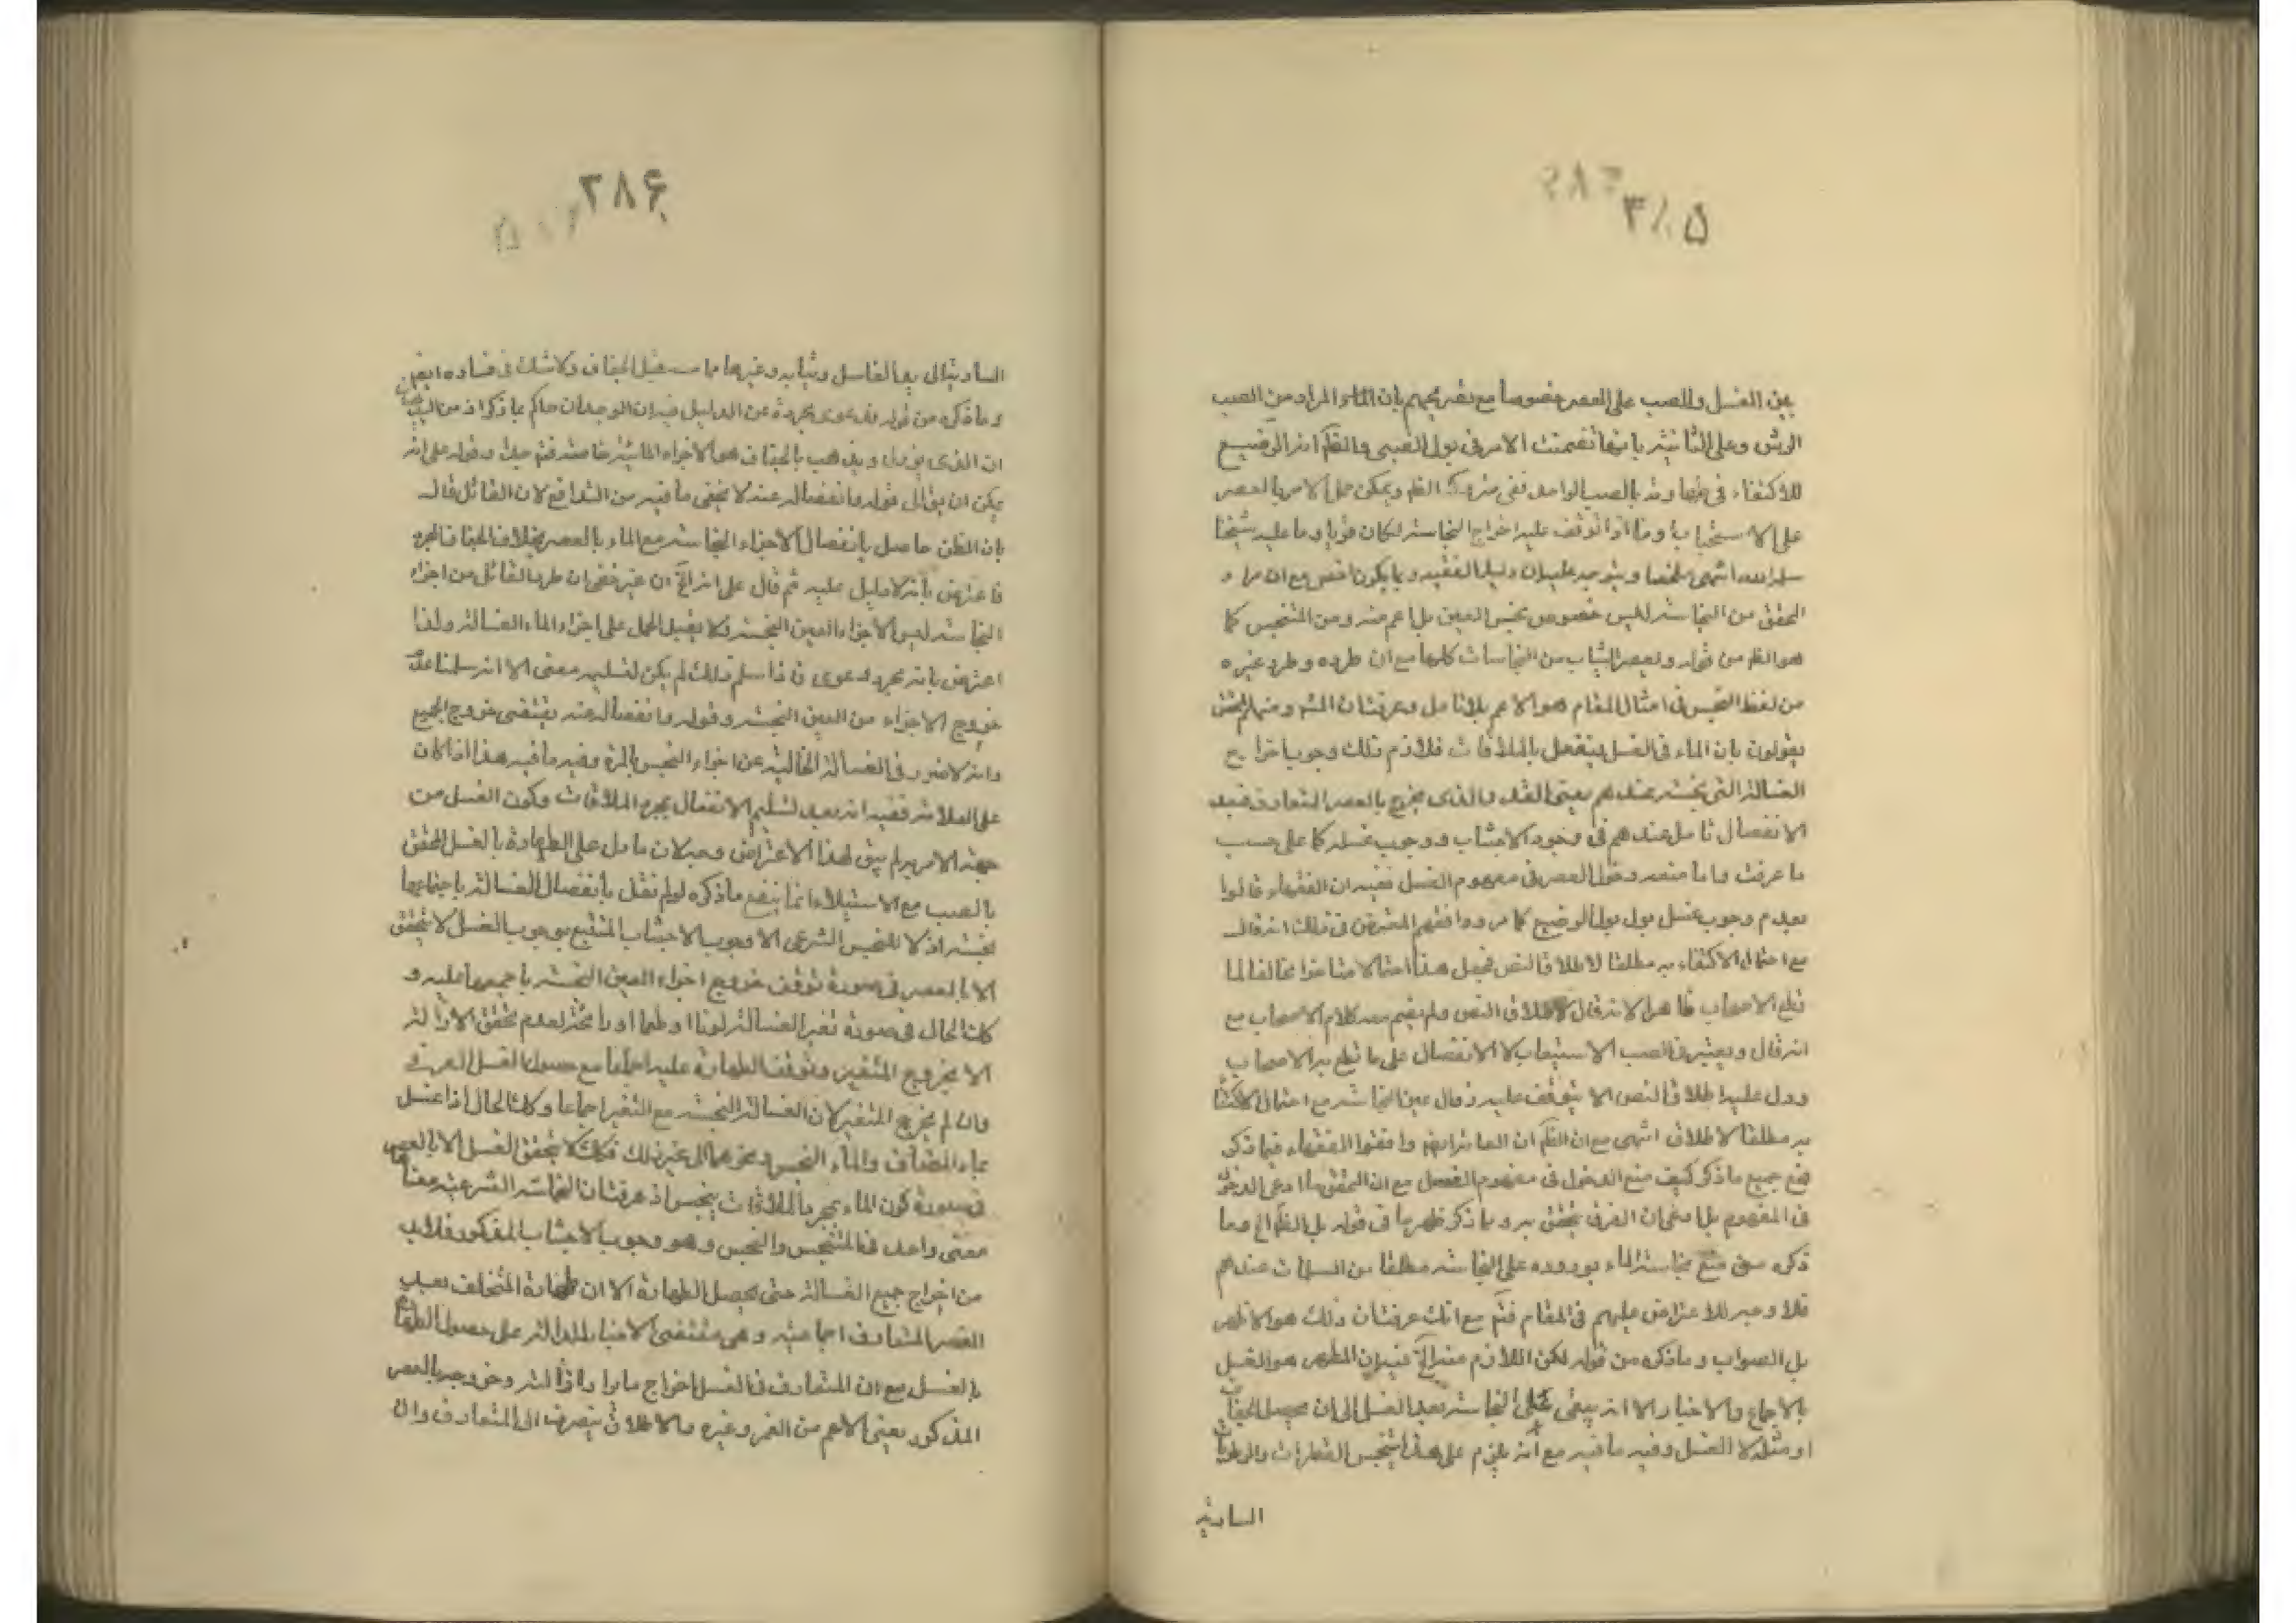 ٣٨٥
بين الغسل والصب على العصر خصوصا مع تصريحهم بان المراد من الصب
الرش وعلى الثانية بانها تضمنت الامر في بول الصبي والظ انه الرضيع
للاكتفاء في بالصب الواحد ففي متروك الظ ويمكن حمل الامر بالعصر
على الاستحباب وما اذا توقف عليه اخراج النجاسة لكان قويا وما عليه شيخنا
سلمه الله انتهى ملخصا ويتوجه عليه ان دليل الفقيه ربما يكون اخص مع ان مراد
المحقق من النجاسة ليس خصوص نجس العين بل اعم منه ومن المتنجس كما
هو الظ من قوله ويعصر الثياب من النجاسات كلها مع ان طرده وطرد غيره
من لفظ النجس في امثال المقام هو الاعم بلا تامل وعرفت ان ومنهم المحقق
يقولون بان الماء في الغسل ينفعل بالملاقات فلازم ذلك وجوب اخراج
الغسالة التي نجسة عندهم يعني القدر الذي يخرج بالعصر المتعارف فبعد
الانفصال تامل عندهم في وجود الاجتناب ووجوب غسله كما على حسب
ما عرفت واما منعه دخول العصر في مفهوم الغسل ففيه ان الفقهاء قالوا
بعدم وجوب غسل بول الرضيع كما مر ووافقهم المعترض في ذلك انه قال
مع احتمال الاكتفاء به مطلقا لاطلاق النص فجعل هذا احتمالا متاخرا مخالفا لما
قطع الاصحاب ظاهرا لانه قال لاطلاق النص ولم يضم معه كلام الاصحاب مع
انه قال ويعتبر في الصب الاستيعاب لا الانفصال على ما قطع به الاصحاب
ودل عليه اطلاق النص الا ان يتوقف عليه زوال عين النجاسة مع احتمال الاكتفاء
به مطلقا لاطلاق انتهى مع ان الظ ان العامة ايضا وافقوا الفقهاء فيما ذكر
فمع جميع ما ذكر كيف منع الدخول في مفهوم الغسل مع ان المحقق ما ادعى الدخول
في المفهوم بل ادعى ان الفرق يتحقق به وبما ذكر ظهر ما في قوله بل الظ الخ وما
ذكره من منع نجاسة الماء بوروده على النجاسة مطلقا من المسلمات عندهم
فلا وجه للاعتراض عليهم في المقام فتم مع انك عرفت ان ذلك هو الاظهر
بل الصواب وما ذكره من قوله لكن اللازم منه الخ ففيه ان المطهر هو الغسل
بالاجماع والاخبار الا انه يبقى على النجاسة بعد الغسل الى ان يحصل الجفاف
او مثله لا الغسل وفيه ما فيه مع انه يلزم على هذا تنجس القطرات والرطوبات
السارية
٣٨۶
السارية الى يد الغاسل وثيابه وغيرها مما قبل الجفاف ولا شك في فساده ايضا
وما ذكره من قوله فدعوى مجردة عن الدليل فيه ان الوجدان حاكم بما ذكر اذ من
ان الذي يزول ويذهب بالجفاف هو الاجزاء المائية خاصة فتم جدا وقوله على انه
يمكن ان يق الى قوله وانفصاله عنه لا يخفى ما فيه من التدافع لان القائل قال
بان الظن حاصل بانفصال الاجزاء النجاسة مع الماء بالعصر بخلاف الجفاف المجرد
فاعترض بانه لا دليل عليه ثم قال على انه الخ ان غير خفي ان مراد القائل من اجزاء
النجاسة ليس الاجزاء العين النجسة فلا يقبل الحمل على اجزاء الماء الغسالة ولذا
اعترض بانه مجرد دعوى فاذا سلم ذلك لم يكن لتسليمه معنى الا انه سلمنا عدم
خروج الاجزاء من العين النجسة وقوله وانفصاله عنه يقتضى خروج الجميع
وانه لا ضرر في الغسالة الخالية عن اجزاء النجس بالمرة وفيه ما فيه هذا اذا كان
على العلامة ففيه انه بعد تسليم الانفعال بمجرد الملاقات وكون الغسل من
جهة الامر به لم يبق لهذا الاعتراض وجه لان ما دل على الطهارة بالغسل المحقق
بالصب مع الاستيلاء انما ينفع ما ذكره لو لم نقل بانفصال الغسالة باجتماعها
نجسة اذ لا للنجس الشرعي الا وجوب الاجتناب المتقبع بوجوب الغسل لا يتحقق
الا بالعصر في صورة توقف خروج اجزاء العين النجسة باجمعها عليه و
كك الحال في صورة تغير الغسالة لونا او طعما او رائحة لعدم تحقق الازالة
الا بخروج المتغير وتوقف الطهارة عليه اجماعا مع حصول الغسل العرفي
وان لم يخرج المتغير لان الغسالة النجسة مع التغير اجماعا وكك الحال اذا غسل
بماء المضاف والماء النجس ونحوهما الى غير ذلك فكك لا يتحقق الغسل الا بالعصر
في صورة كون الماء بمجرد الملاقات ينجس اذ عرفت ان النجاسة الشرعية معناها
معنى واحد في المتنجس والنجس وهو وجوب الاجتناب المذكور فلابد
من اخراج جميع الغسالة حتى يحصل الطهارة الا ان طهارة المتخلف بعد
العصر المتعارف اجماعية وهي مقتضى الاخبار الدالة على حصول الطهارة
بالغسل مع ان المتعارف في الغسل اخراج ما وازالته وخروجه بالعصر
المذكور يعني الاعم من الغمز وغيره والاطلاق ينصرف الى المتعارف وان